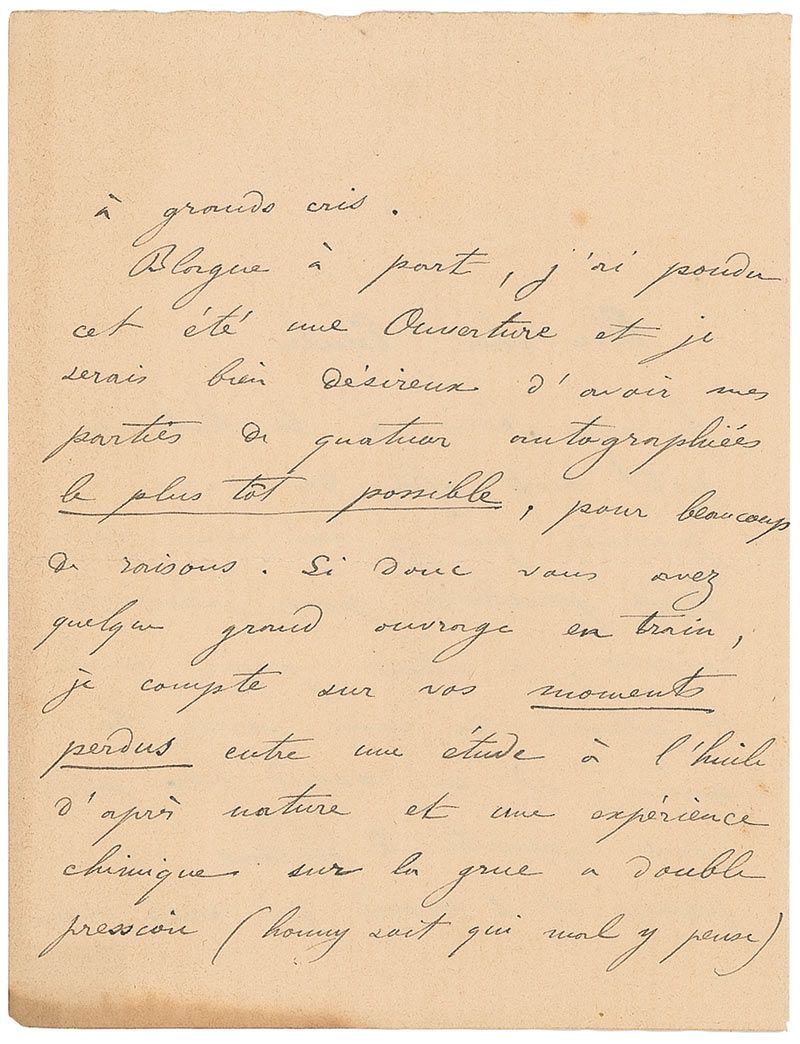 à grands cris.
Blague à part, j'ai pondu
cet été une Ouverture et je
serais bien désireux d'avoir mes
parties de quatuor autographiées
le plus tôt possible, pour beaucoup
de raisons. Si donc vous avez
quelque grand ouvrage en train,
je compte sur vos moments
perdus entre une étude à l'huile
d'après nature et une expérience
chimique sur la grue a double
pression (honny soit qui mal y pense)